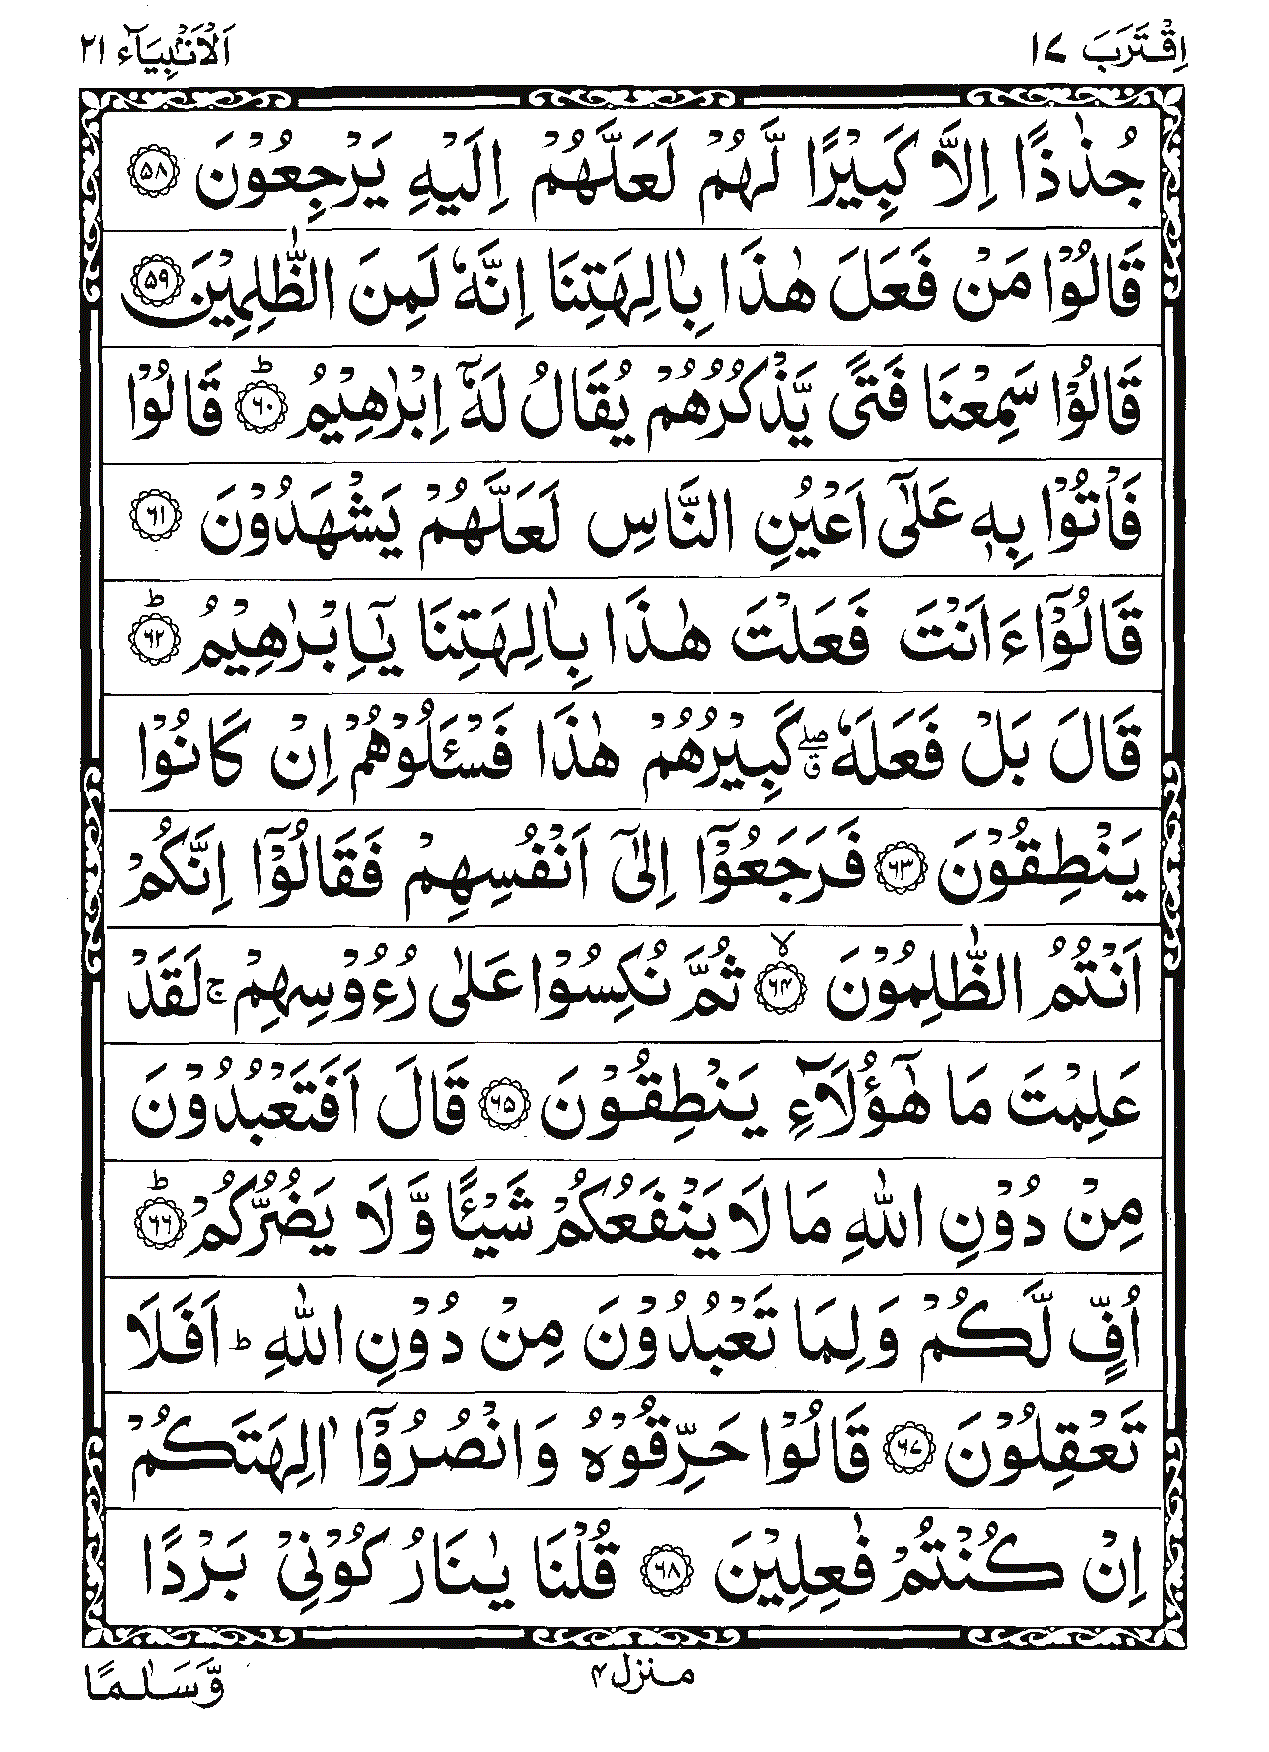 اِقْتَرَبَ ١٧
اَلْاَنْۢبِيَآء ٢١
جُذٰذًا اِلَّا كَبِيْرًا لَّهُمْ لَعَلَّهُمْ اِلَيْهِ يَرْجِعُوْنَ ﴿۵۸﴾
قَالُوْا مَنْ فَعَلَ هٰذَا بِاٰلِهَتِنَاۤ اِنَّهٗ لَمِنَ الظّٰلِمِيْنَ ﴿۵۹﴾
قَالُوْا سَمِعْنَا فَتًى يَّذْكُرُهُمْ يُقَالُ لَهٗۤ اِبْرٰهِيْمُ ﴿۶۰﴾ؕ قَالُوْا
فَاْتُوْا بِهٖ عَلٰٓى اَعْيُنِ النَّاسِ لَعَلَّهُمْ يَشْهَدُوْنَ ﴿۶۱﴾
قَالُوْۤا ءَاَنْتَ فَعَلْتَ هٰذَا بِاٰلِهَتِنَا يٰۤاِبْرٰهِيْمُ ﴿۶۲﴾ؕ
قَالَ بَلْ فَعَلَهٗ ۖۗ كَبِيْرُهُمْ هٰذَا فَسْـَٔلُوْهُمْ اِنْ كَانُوْا
يَنْطِقُوْنَ ﴿۶۳﴾ فَرَجَعُوْۤا اِلٰٓى اَنْفُسِهِمْ فَقَالُوْۤا اِنَّكُمْ
اَنْتُمُ الظّٰلِمُوْنَ ﴿۶۴﴾ۙ ثُمَّ نُكِسُوْا عَلٰى رُءُوْسِهِمْ ۚ لَقَدْ
عَلِمْتَ مَا هٰٓؤُلَآءِ يَنْطِقُوْنَ ﴿۶۵﴾ قَالَ اَفَتَعْبُدُوْنَ
مِنْ دُوْنِ اللّٰهِ مَا لَا يَنْفَعُكُمْ شَيْـًٔا وَّ لَا يَضُرُّكُمْ ﴿۶۶﴾ؕ
اُفٍّ لَّكُمْ وَ لِمَا تَعْبُدُوْنَ مِنْ دُوْنِ اللّٰهِ ؕ اَفَلَا
تَعْقِلُوْنَ ﴿۶۷﴾ قَالُوْا حَرِّقُوْهُ وَ انْصُرُوْۤا اٰلِهَتَكُمْ
اِنْ كُنْتُمْ فٰعِلِيْنَ ﴿۶۸﴾ قُلْنَا يٰنَارُ كُوْنِيْ بَرْدًا
منزل ۴
وَّسَلٰمًا